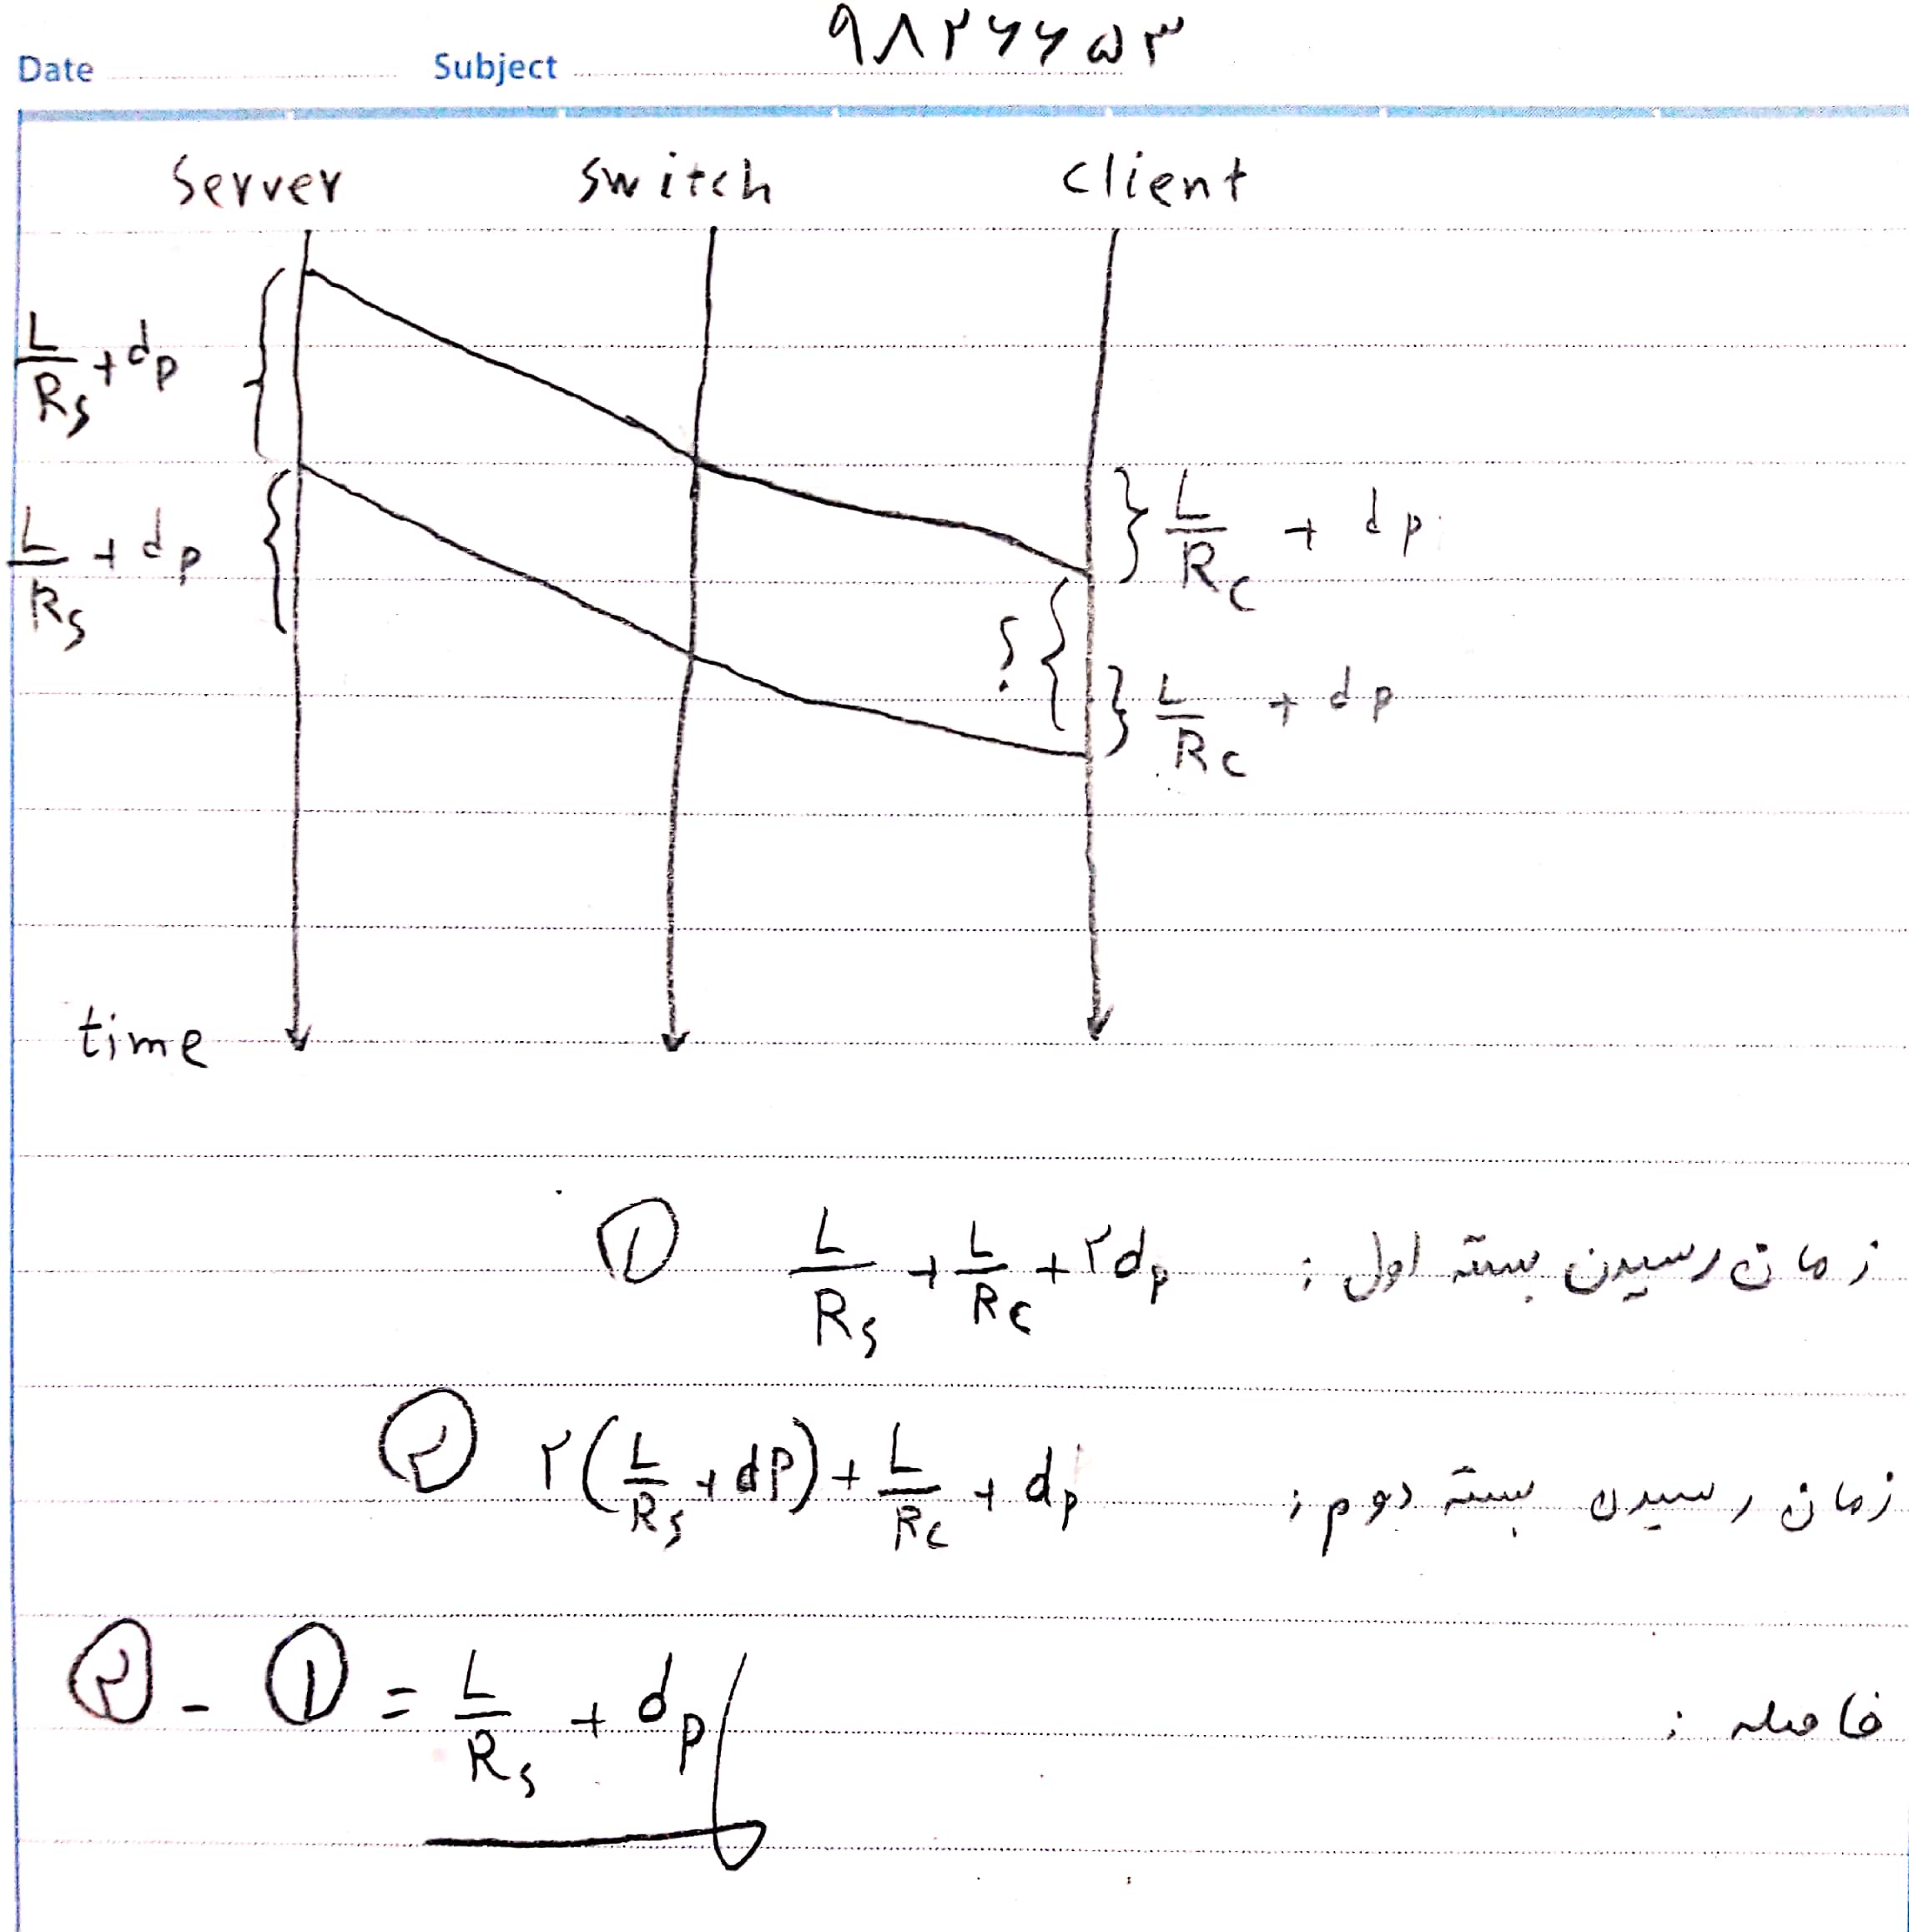 ۹۸۲۶۶۵۳
Date Subject
Server switch client
L/Rs + dp
L/Rc + dp
L/Rs + dp
؟
L/Rc + dp
time
زمان رسیدن بسته اول : L/Rs + L/Rc + ۲dp ①
زمان رسیدن بسته دوم : ۲(L/Rs + dp) + L/Rc + dp ②
فاصله : ② - ① = L/Rs + dp